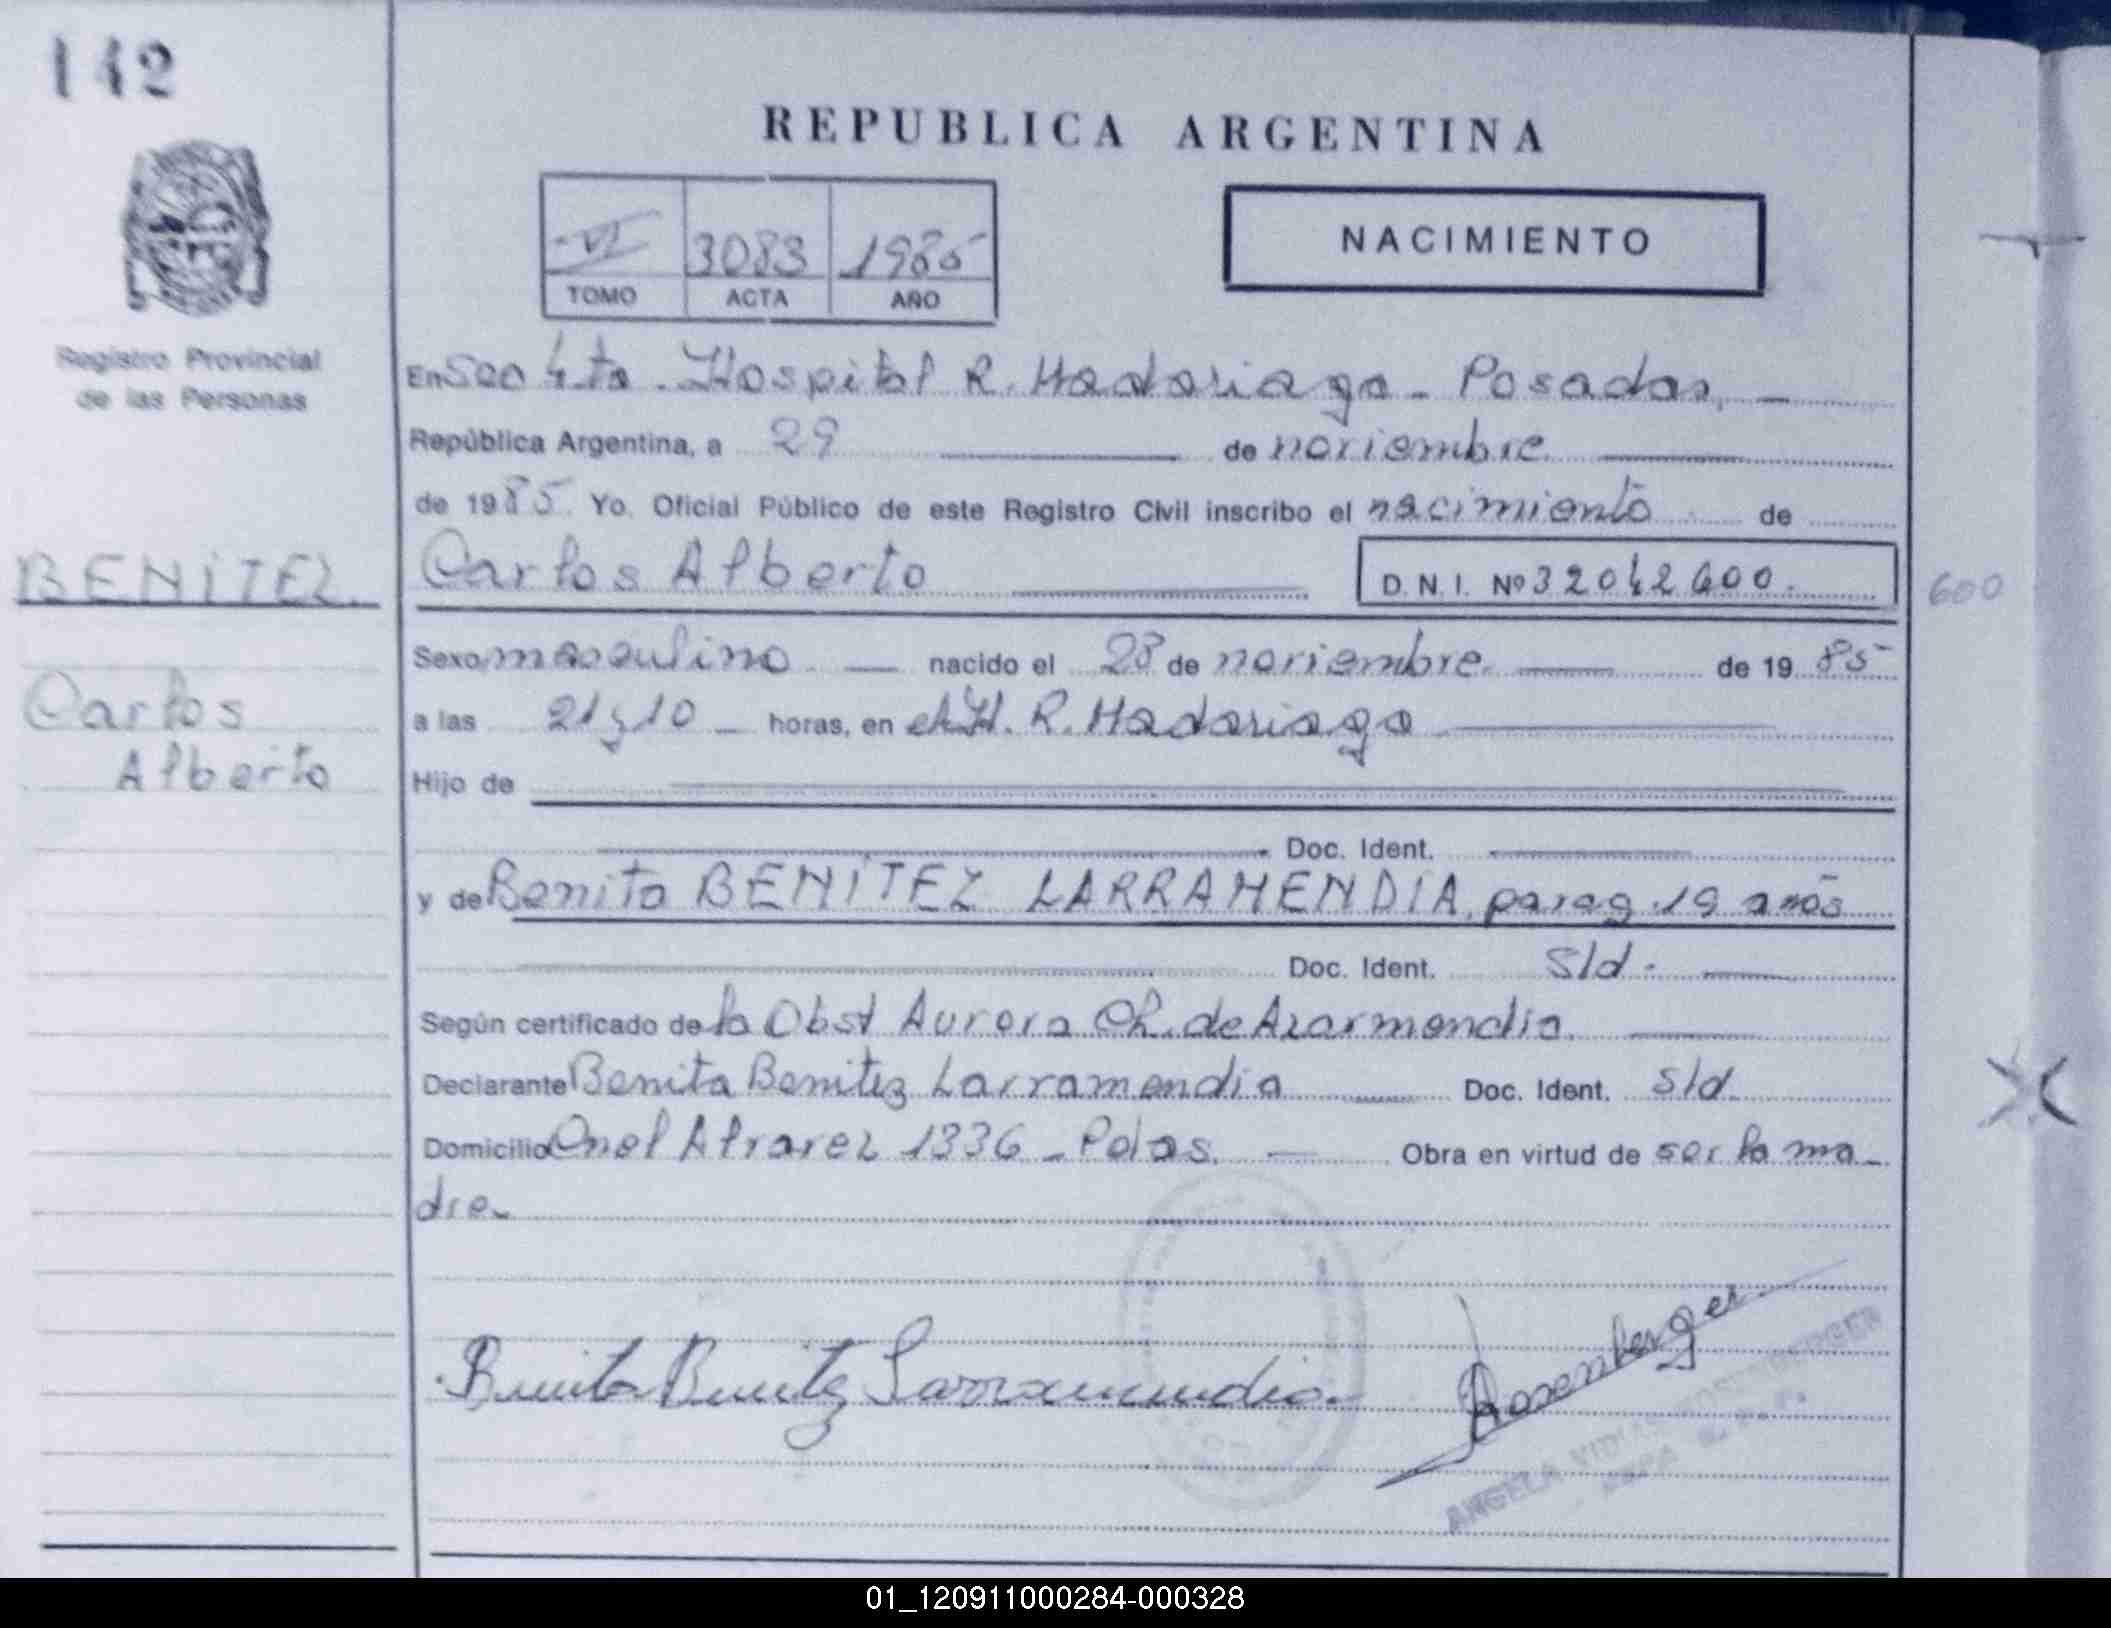 142
REPUBLICA ARGENTINA
NACIMIENTO
VI 3083 1985
TOMO ACTA AÑO
Registro Provincial
de las Personas
En Sec 4ta. Hospital R. Madariaga - Posadas, -
República Argentina, a 29 de noviembre
de 1985. Yo, Oficial Público de este Registro Civil inscribo el nacimiento de
BENITEZ.
Carlos Alberto D. N. I. Nº 32042600. 600
Carlos
Alberto
Sexo masculino nacido el 28 de noviembre. de 19 85
a las 21 y 10 horas, en el H. R. Madariaga
Hijo de
Doc. Ident.
y de Benita BENITEZ LARRAMENDIA, parag. 19 años
Doc. Ident. s/d.
Según certificado de la Obst Aurora Ch. de Azarmendia.
Declarante Benita Benitez Larramendia Doc. Ident. s/d.
Domicilio Cnel Alvarez 1336 - Pdas. Obra en virtud de ser la ma-
dre-
Benita Benitez Larramendia.
Rosenberger
ANGELA ROSENBERGER
01_120911000284-000328